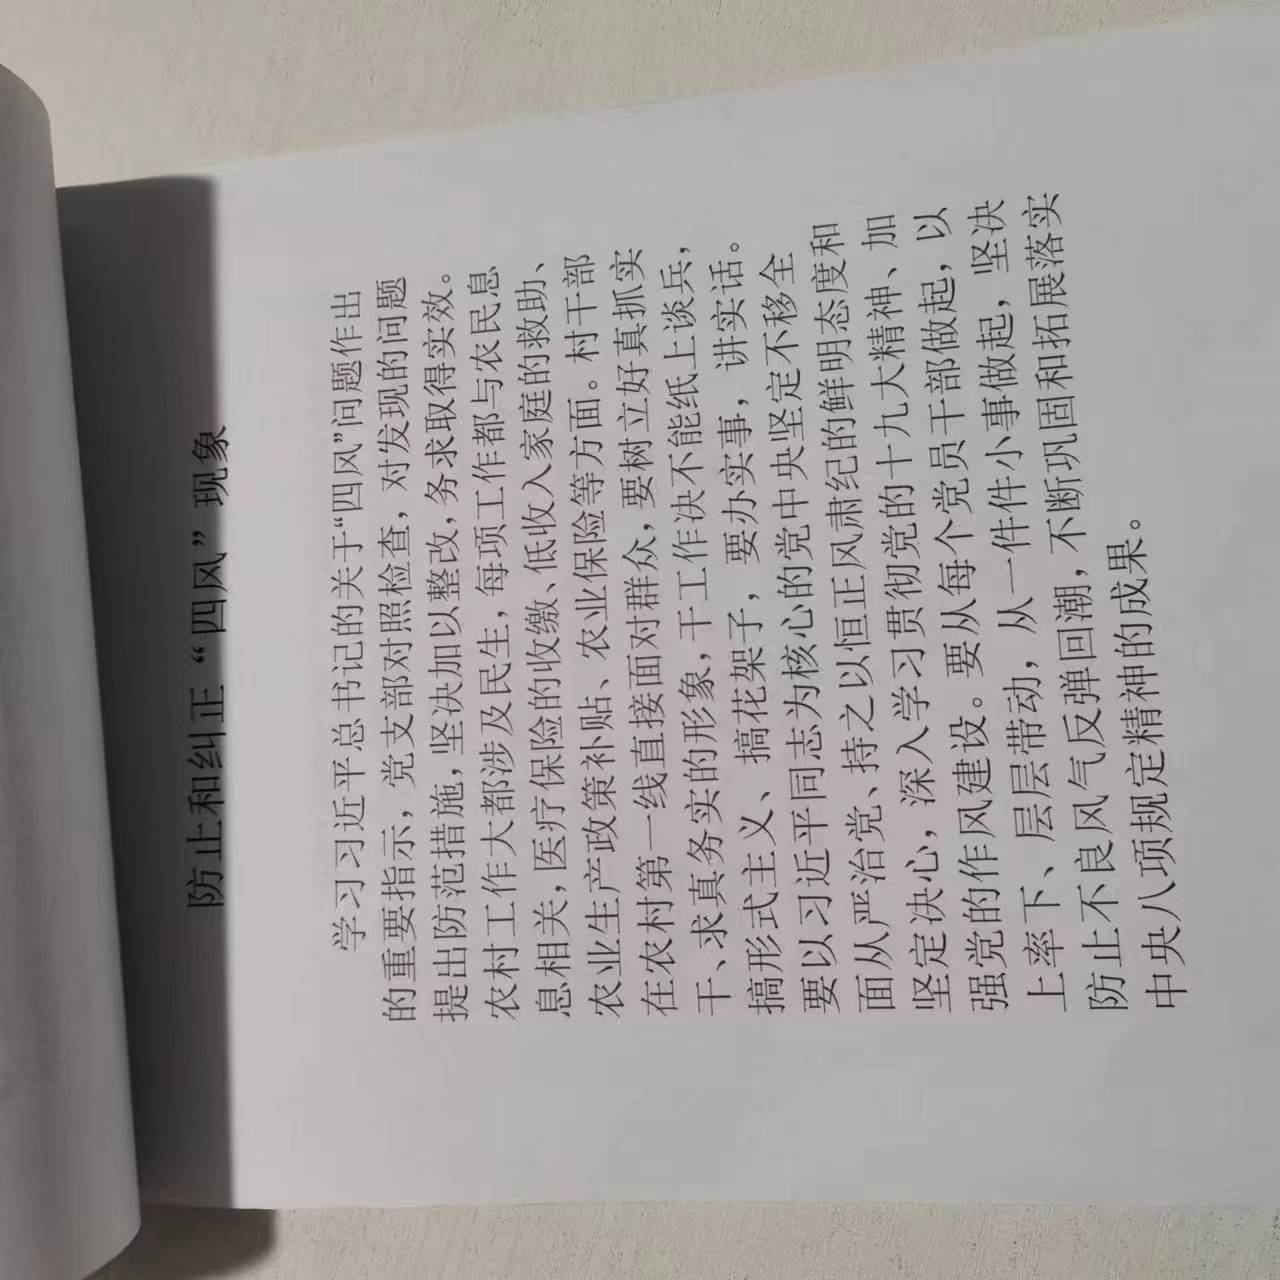 防止和纠正“四风”现象
学习习近平总书记的关于“四风”问题作出
的重要指示，党支部对照检查，对发现的问题
提出防范措施，坚决加以整改，务求取得实效。
农村工作大都涉及民生，每项工作都与农民息
息相关，医疗保险的收缴、低收入家庭的救助、
农业生产政策补贴、农业保险等方面。村干部
在农村第一线直接面对群众，要树立好真抓实
干、求真务实的形象，干工作决不能纸上谈兵，
搞形式主义、搞花架子，要办实事，讲实话。
要以习近平同志为核心的党中央坚定不移全
面从严治党、持之以恒正风肃纪的鲜明态度和
坚定决心，深入学习贯彻党的十九大精神、加
强党的作风建设。要从每个党员干部做起，以
上率下、层层带动，从一件件小事做起，坚决
防止不良风气反弹回潮，不断巩固和拓展落实
中央八项规定精神的成果。